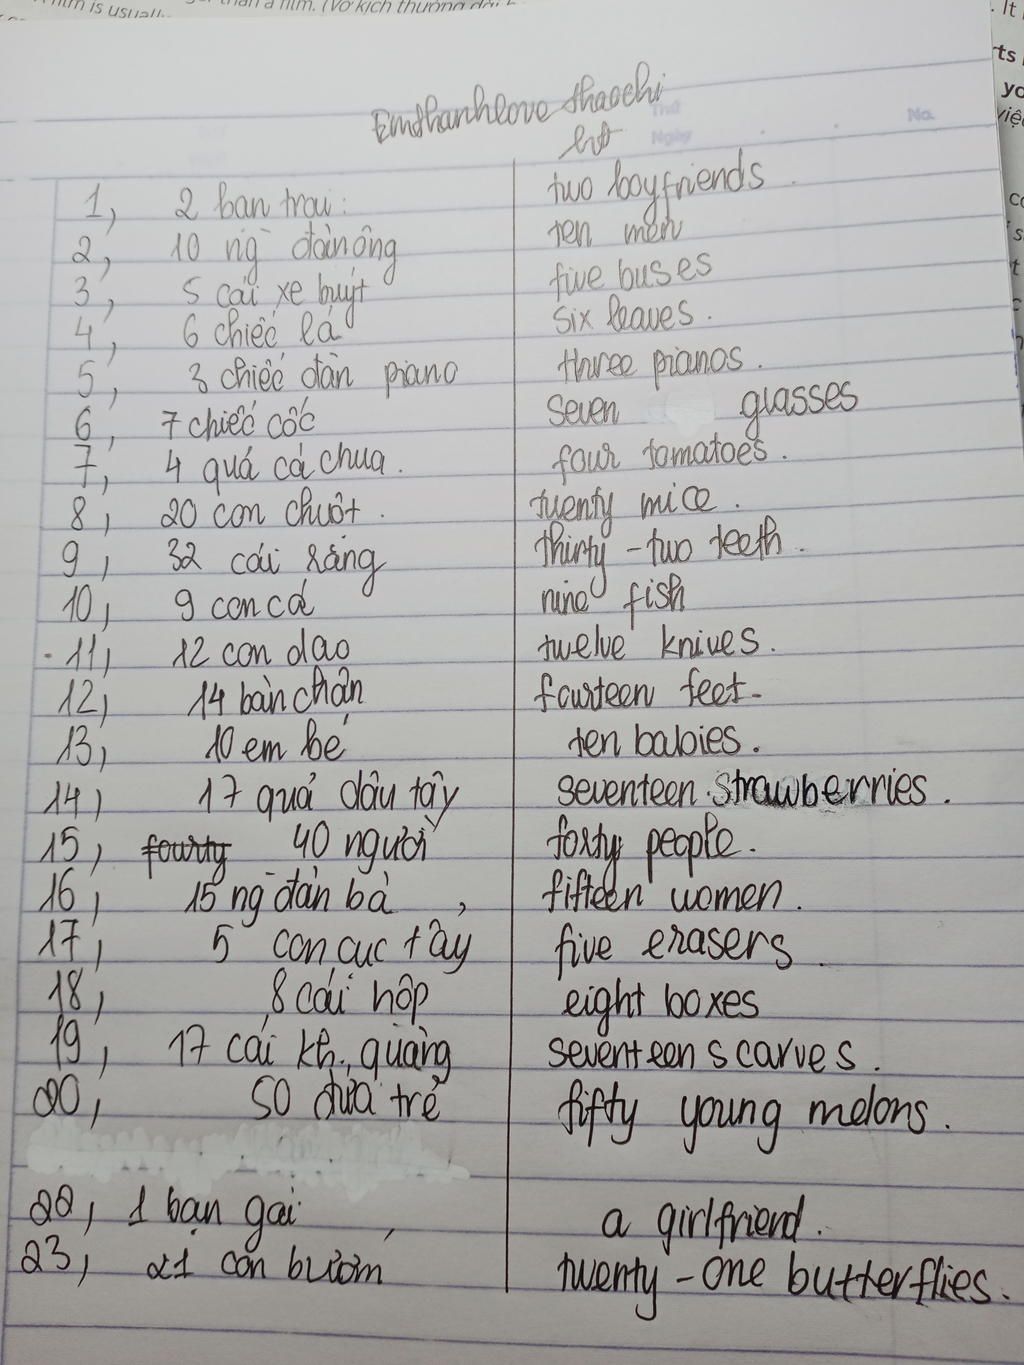 than a film. (Vở kịch thường dài
film is usually
. It
rts
yo
Emthanhlove thaochi
Thứ
Ngày
No.
1, 2 bạn trai: two boyfriends.
2, 10 ng đàn ông ten men
3, 5 cái xe buýt five buses
4, 6 chiếc lá six leaves.
5, 3 chiếc đàn piano three pianos.
6, 7 chiếc cốc seven glasses
7, 4 quả cà chua. four tomatoes.
8, 20 con chuột. twenty mice.
9, 32 cái răng thirty-two teeth.
10, 9 con cá nine fish
11, 12 con dao twelve knives.
12, 14 bàn chân fourteen feet.
13, 10 em bé ten babies.
14, 17 quả dâu tây seventeen strawberries.
15, fourty 40 người forty people.
16, 15 ng đàn bà, fifteen women.
17, 5 con cục tẩy five erasers.
18, 8 cái hộp eight boxes
19, 17 cái kh. quàng seventeen scarves.
20, 50 đứa trẻ fifty young melons.
22, 1 bạn gái, a girlfriend.
23, 21 con bướm twenty-one butterflies.